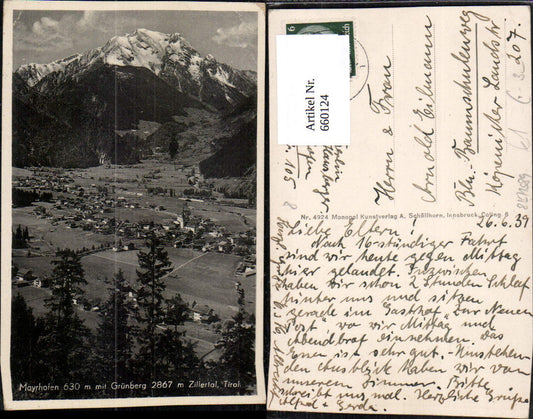 Mayrhofen 630 m mit Grünberg 2867 m Zillertal, Tirol
6
Artikel Nr.
660124
Herrn & Frau
Arnold Eilmann
Bln. Baumschulenweg
Köpenicker Landstr
207.
Nr. 4924 Monopol Kunstverlag A. Schöllhorn, Innsbruck
26.6.39
Liebe Eltern!
Nach 16 stündiger Fahrt
sind wir heute gegen Mittag
hier gelandet. Inzwischen
haben wir schon 2 Stunden Schlaf
hinter uns und sitzen
gerade im Gasthof "Zur Neuen
Post" wo wir Mittag und
Abendbrot einnehmen. Das
Essen ist sehr gut.
den Ausblick haben wir von
unserem Zimmer. Bitte
schreibt uns mal. Herzliche Grüße
Alfred + Gerda.